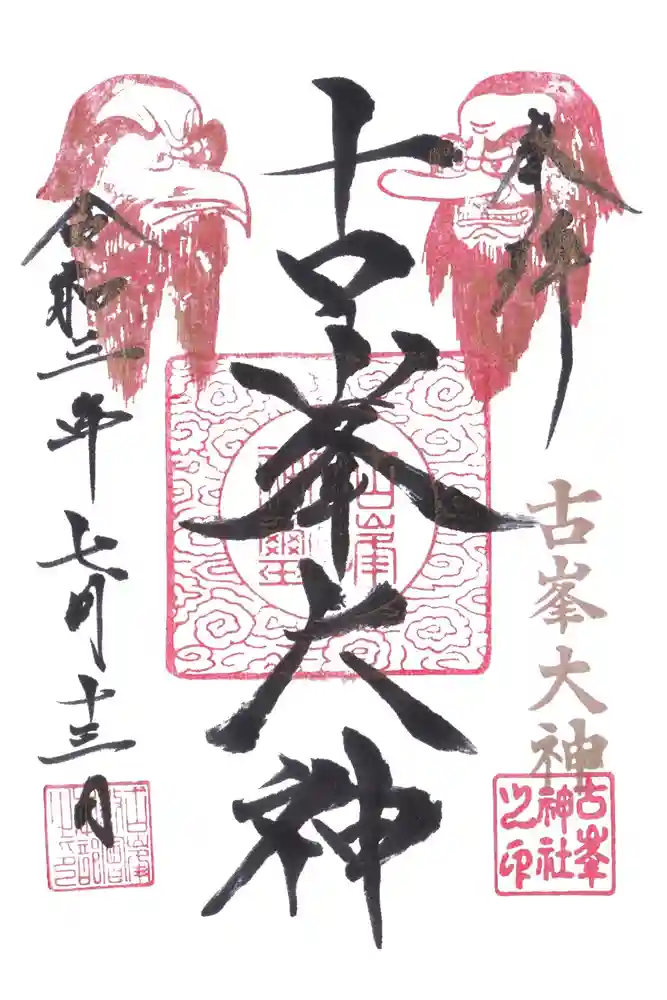 奉拝
古峯大神
古峯
神社
之印
古峯大神
令和三年七月十三日